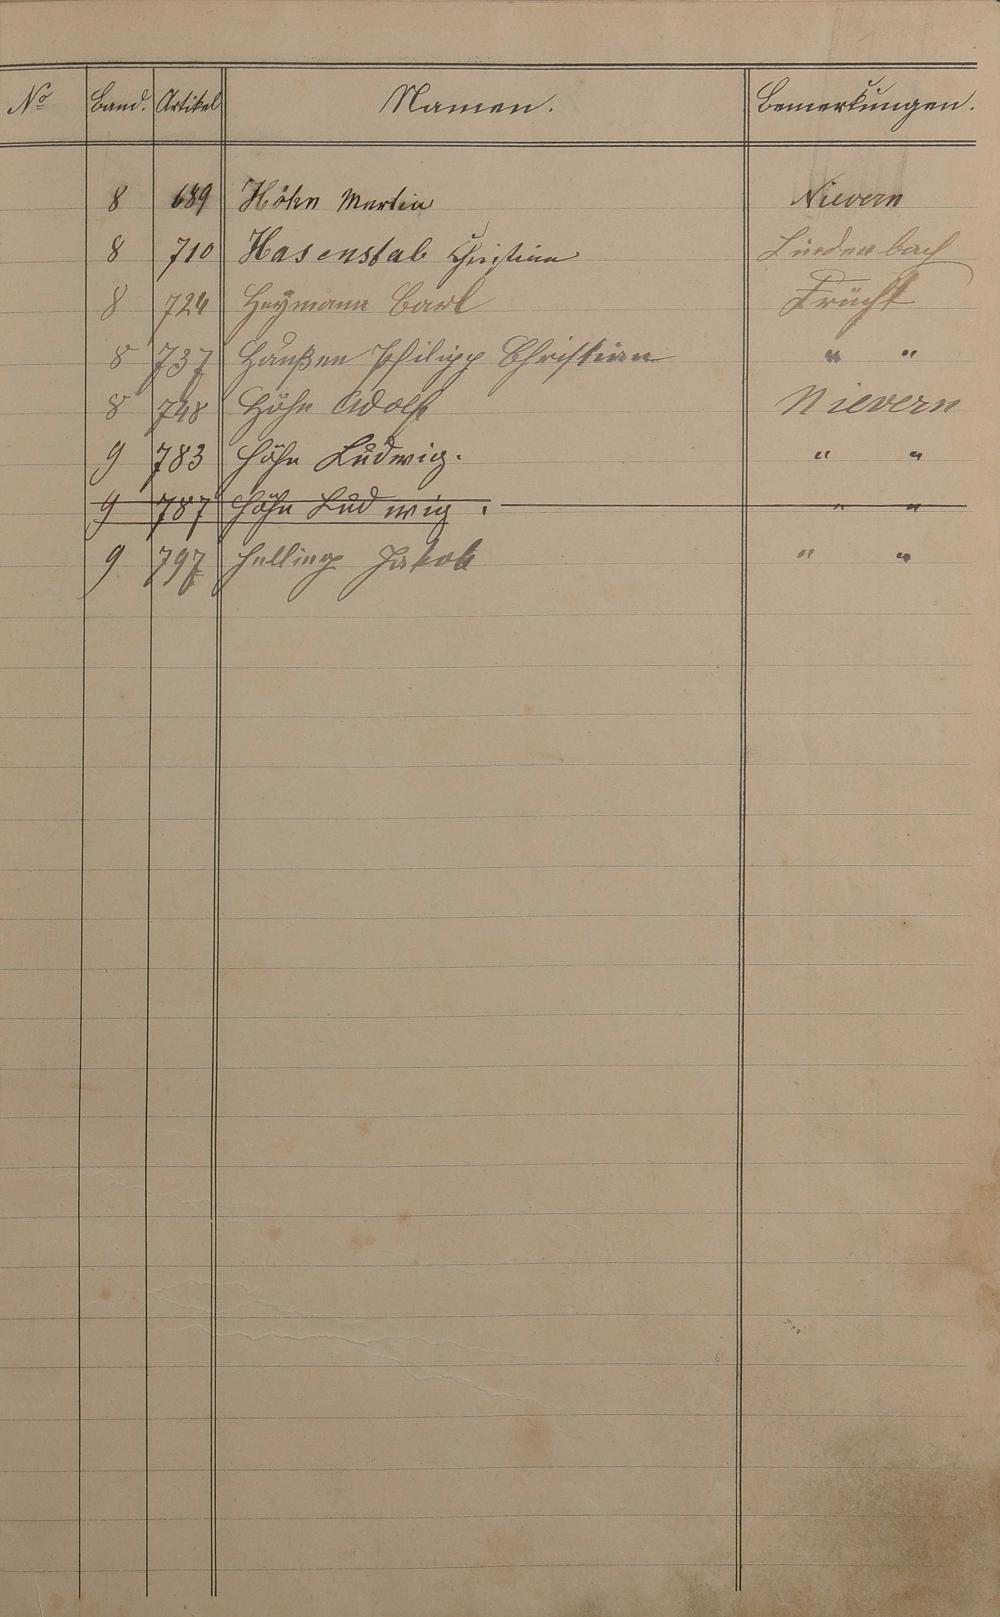 No Band. Artikel Namen. Bemerkungen.
8 689 Höhn Martin Nievern
8 710 Hasenstab Christian
8 724 Heymann Carl Frücht
8 737 Philipp Christian " "
8 748 Höhn Adolf Nievern
9 783 Höhn Ludwig. " "
9 787 Höhn Ludwig. " "
9 797 Jakob " "